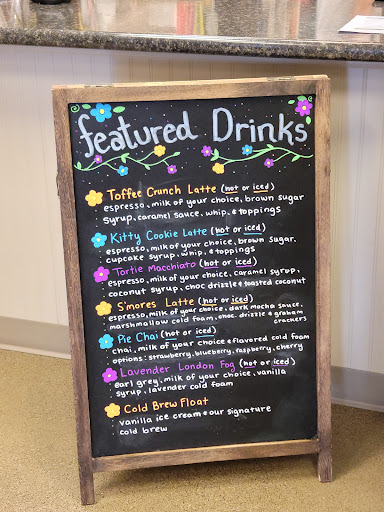 featured Drinks
Toffee Crunch Latte (hot or iced)
espresso, milk of your choice, brown sugar
syrup, caramel sauce, whip, & toppings
Kitty Cookie Latte (hot or iced)
espresso, milk of your choice, brown sugar.
cupcake syrup, whip, & toppings
Tortie Macchiato (hot or iced)
espresso, milk of your choice, caramel syrup,
coconut syrup, choc drizzle & toasted coconut
S'mores Latte (hot or iced)
espresso, milk of your choice, dark mocha sauce,
marshmallow cold foam, choc drizzle & graham
crackers
Pie Chai (hot or iced)
chai, milk of your choice & flavored cold foam
options: strawberry, blueberry, raspberry, cherry
Lavender London Fog (hot or iced)
earl grey, milk of your choice, vanilla
syrup, lavender cold foam
Cold Brew Float
vanilla ice cream & our signature
cold brew